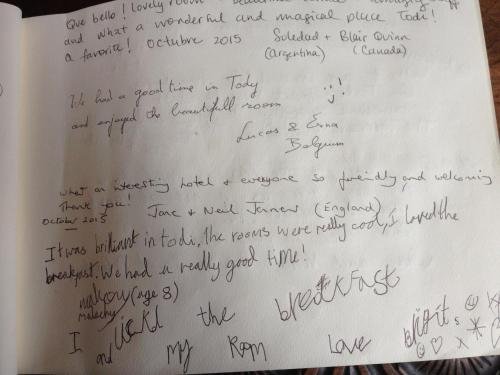 Que bello! Lovely room
and what a wonderful and magical place Todi!
a favorite! Octubre 2015 Soledad + Blair Quinn
(Argentina) (Canada)
We had a good time in Tody :)!
and enjoyed the beautifull room
Lucas & Erna
Belgium
What an interesting hotel + everyone so friendly and welcoming
Thank you!
October 2015 Jane & Neil (England)
It was brilliant in todi, the rooms were really cool, I loved the
breakfast. We had a really good time!
(age 8)
malachy
I the breakfast
and my Room Love